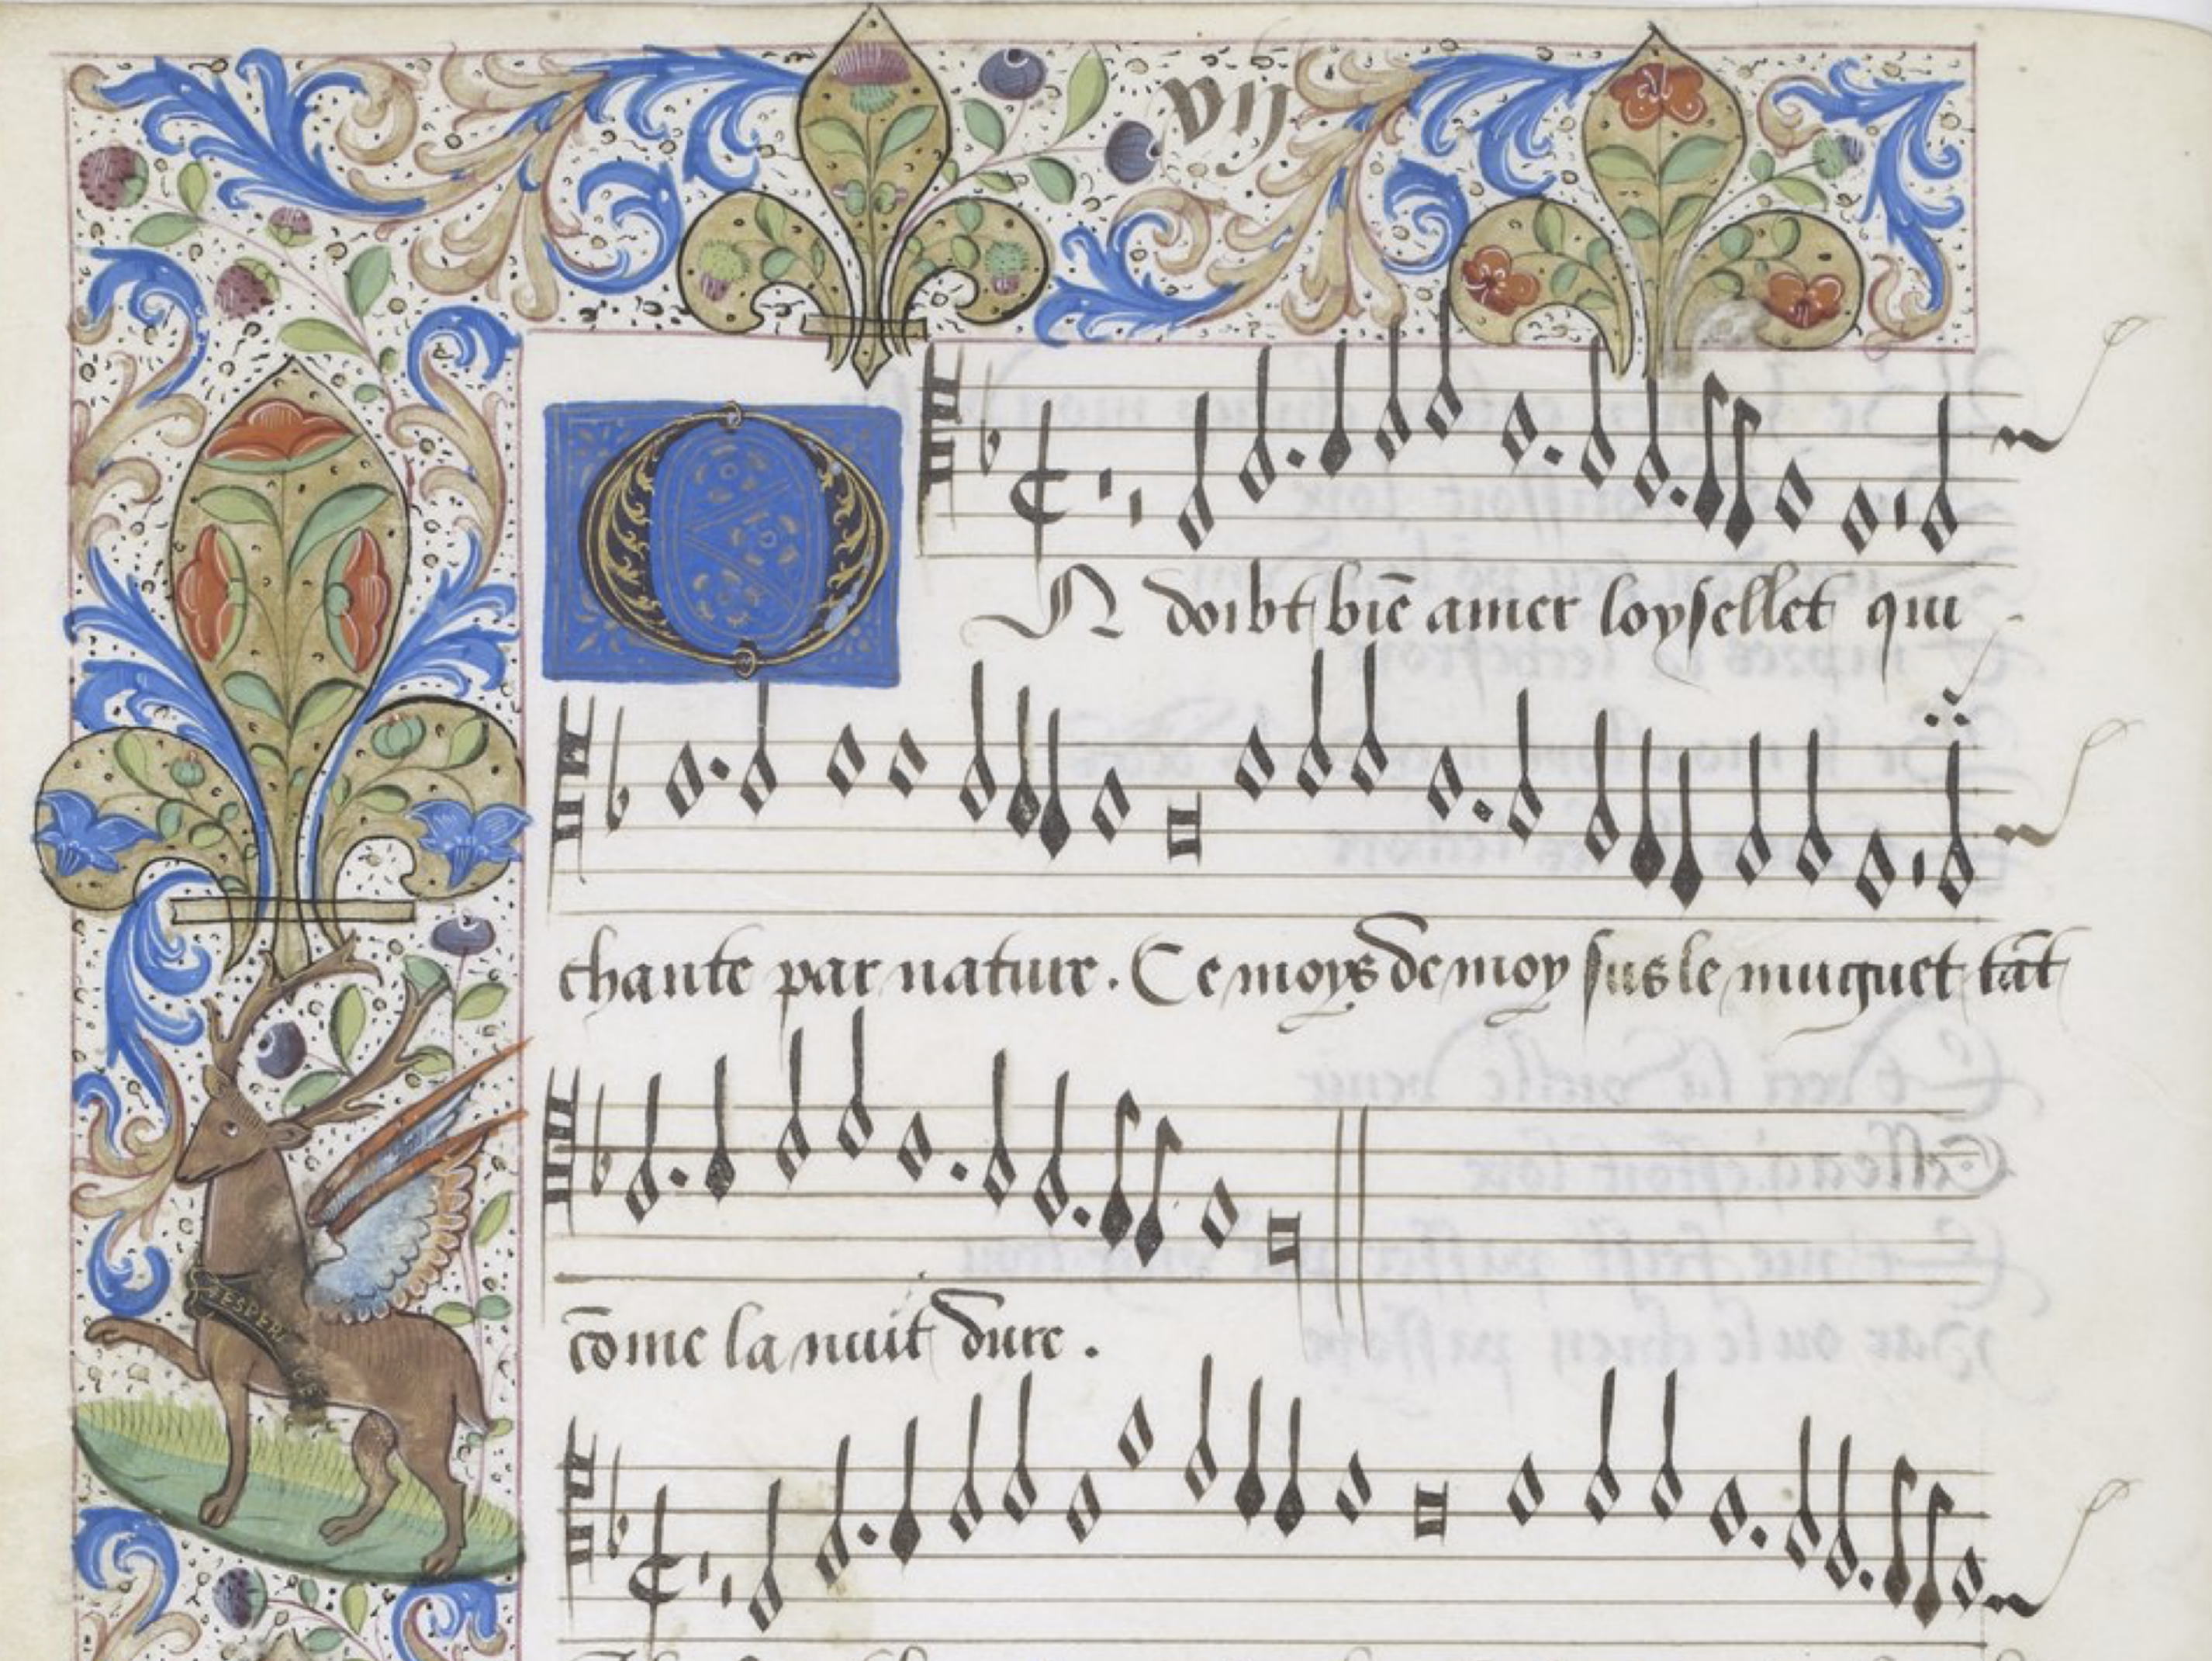 vij
On doibt bie͞ amer loysellet qui
chante par nature. Ce moys de moy sus le muguet ta͞t
co͞me la nuit dure.
ESPERE